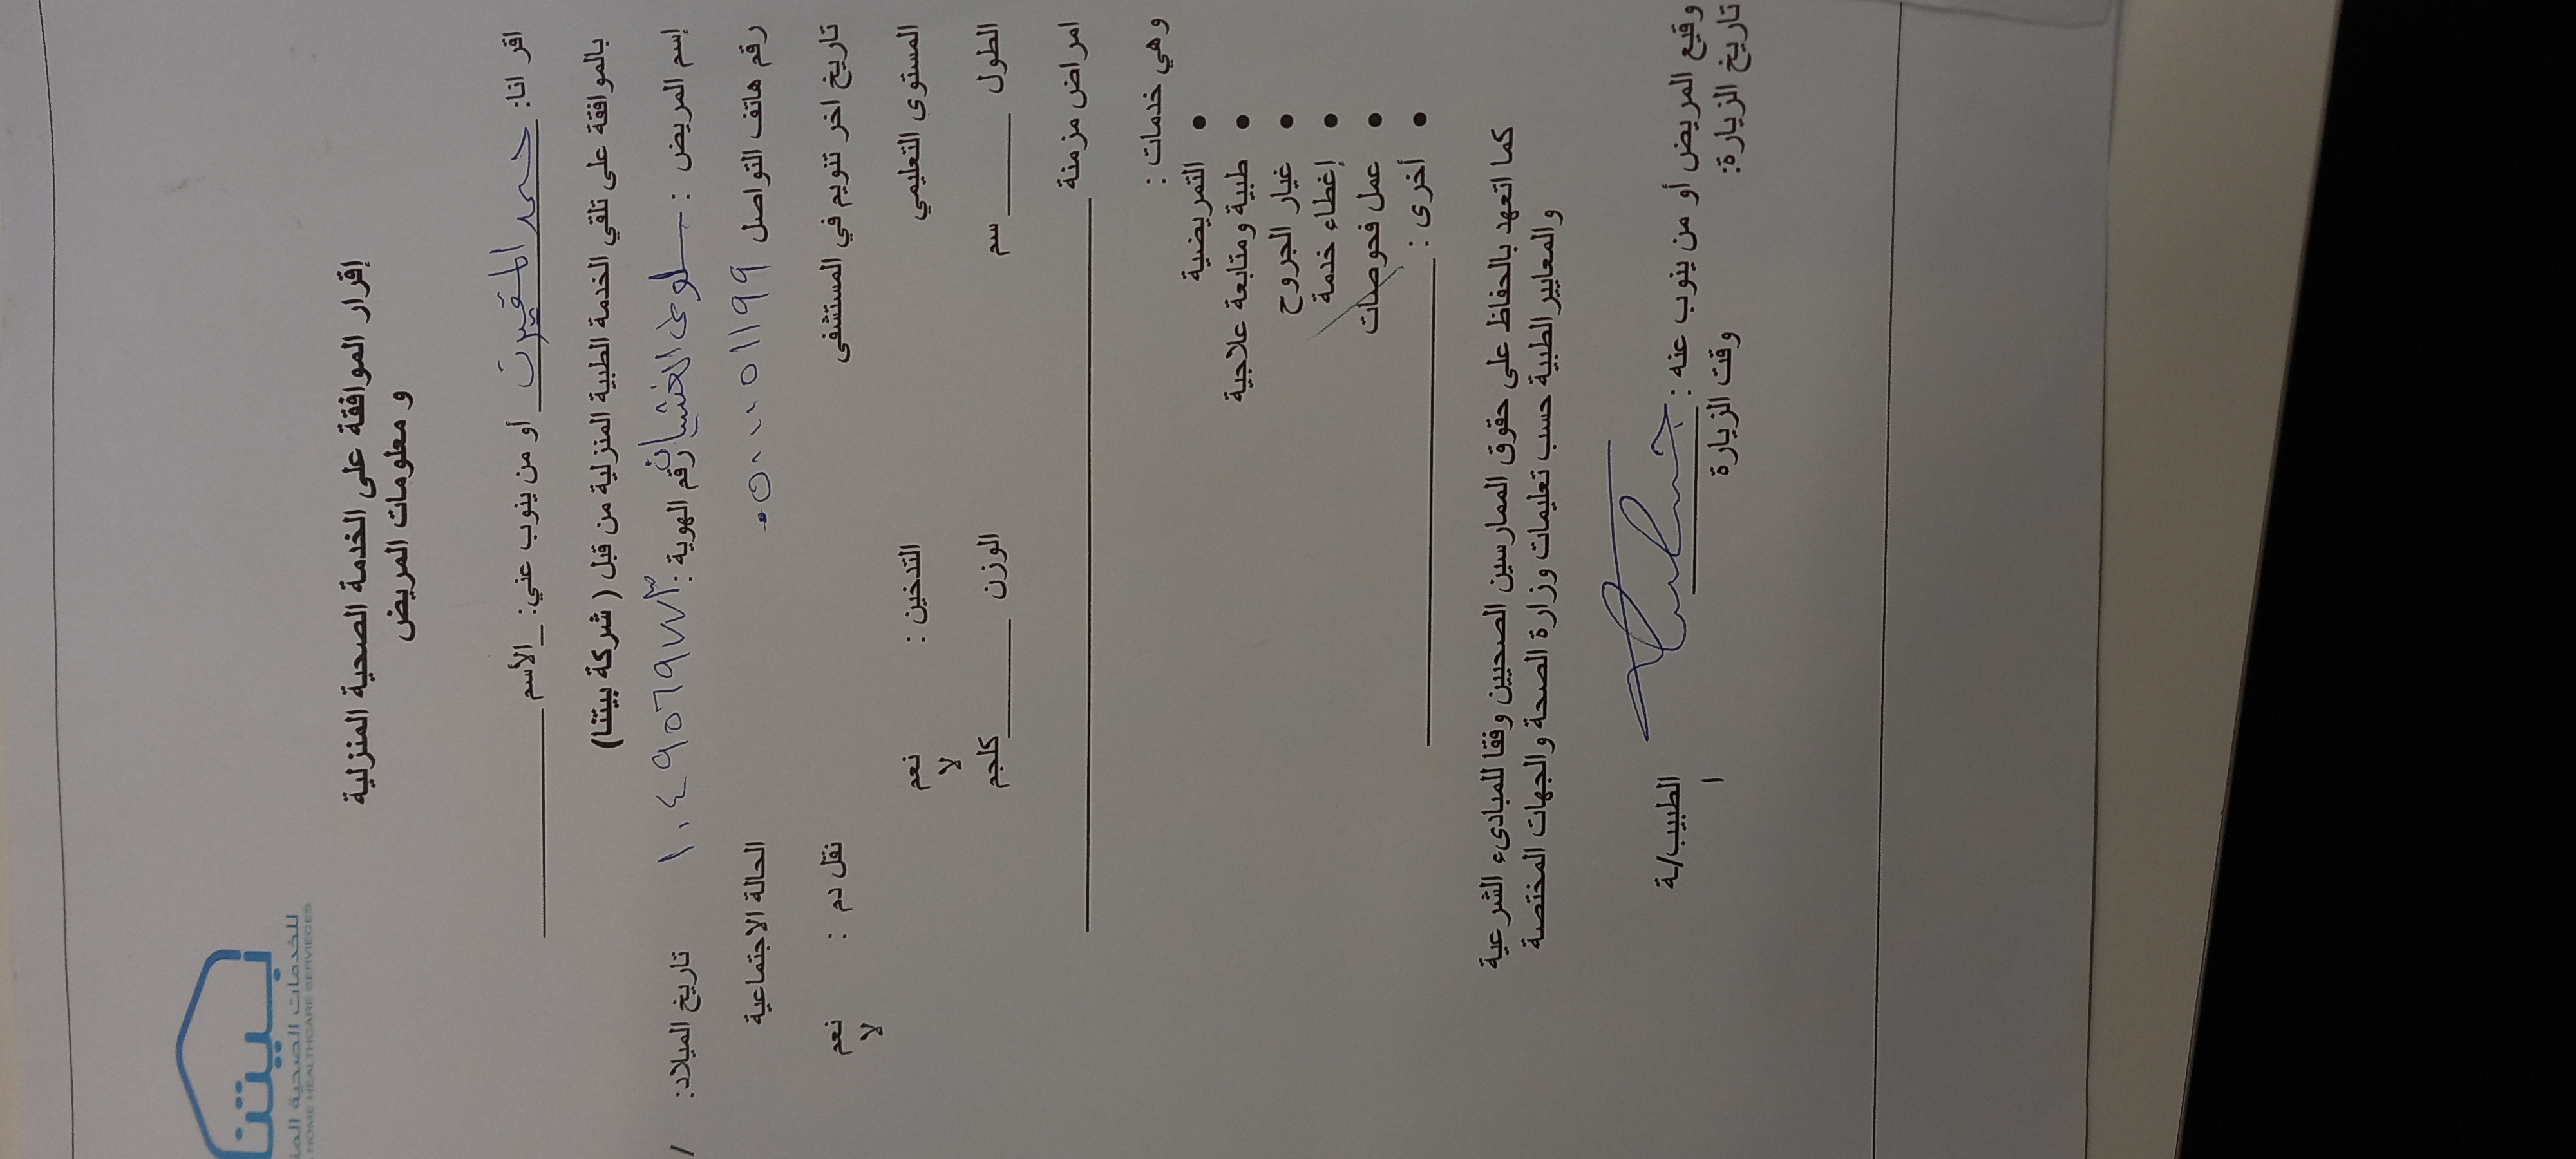 بيتنا
للخدمات الصحية المنزلية
HOME HEALTHCARE SERVIECES
إقرار الموافقة على الخدمة الصحية المنزلية
و معلومات المريض
اقر انا: حمد أو من ينوب عني: _الأسم
بالموافقة على تلقي الخدمة الطبية المنزلية من قبل ( شركة بيتنا)
إسم المريض : سلوى رقم الهوية : ١٠٤٩٥٦٩٧٧٣ تاريخ الميلاد: /
رقم هاتف التواصل ٠٥٠٠٠٥١١٩٩ الحالة الاجتماعية
تاريخ اخر تنويم في المستشفى نقل دم : نعم
لا
المستوى التعليمي التدخين : نعم
لا
الطول سم الوزن كلجم
امراض مزمنة
وهي خدمات :
• التمريضية
• طبية ومتابعة علاجية
• غيار الجروح
• إغطاء خدمة
• عمل فحوصات
• أخرى :
كما اتعهد بالحفاظ على حقوق الممارسين الصحيين وفقا للمبادىء الشرعية
والمعايير الطبية حسب تعليمات وزارة الصحة والجهات المختصة
وقيع المريض أو من ينوب عنه : الطبيب/ة
تاريخ الزيارة: وقت الزيارة ا